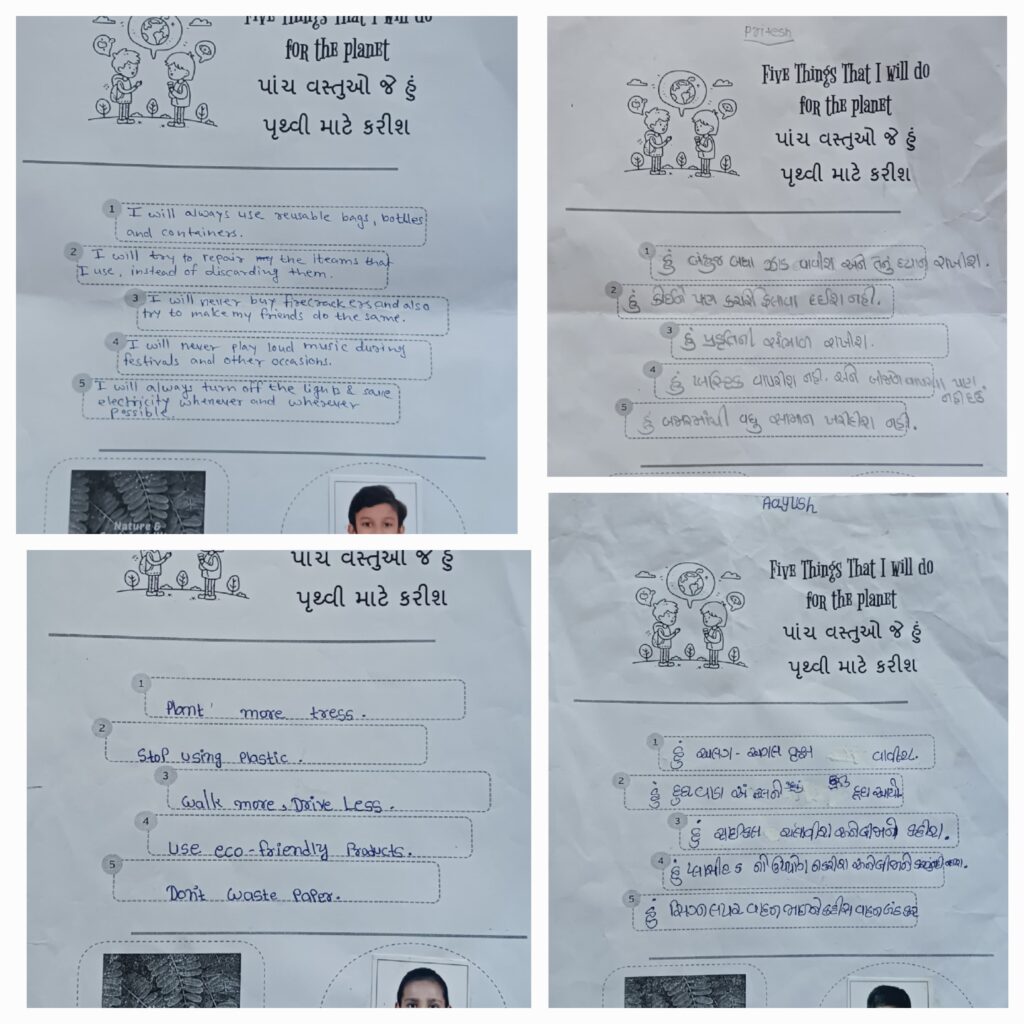 Five Things That I will do
for the planet
પાંચ વસ્તુઓ જે હું
પૃથ્વી માટે કરીશ
1
I will always use reusable bags, bottles
and containers.
2
I will try to repair the iteams that
I use, instead of discarding them.
3
I will never buy firecrackers and also
try to make my friends do the same.
4
I will never play loud music during
festivals and other occasions.
5
I will always turn off the lights & save
electricity whenever and wherever
possible.
Nature &
Pritesh
Five Things That I will do
for the planet
પાંચ વસ્તુઓ જે હું
પૃથ્વી માટે કરીશ
1
હું બધા ઝાડ વાવીશ અને તેનું ધ્યાન રાખીશ.
2
હું કોઈને પણ કચરો ફેલાવા દઈશ નહી.
3
હું પ્રકૃતિની સંભાળ રાખીશ.
4
હું પ્લાસ્ટિક વાપરીશ નહી. અને પણ
નહી દઉં
5
હું વધુ સામાન ખરીદીશ નહી.
પાંચ વસ્તુઓ જે હું
પૃથ્વી માટે કરીશ
1
Plant more tress.
2
Stop using Plastic.
3
Walk more, Drive Less.
4
Use eco-friendly Products.
5
Don't waste Paper.
Aayush
Five Things That I will do
for the planet
પાંચ વસ્તુઓ જે હું
પૃથ્વી માટે કરીશ
1
હું અલગ - અલગ વાવીશ.
2
હું
3
હું સાઈકલ ચલાવીશ અને બીજાને કહીશ.
4
હું નો ઉપયોગ
5
હું